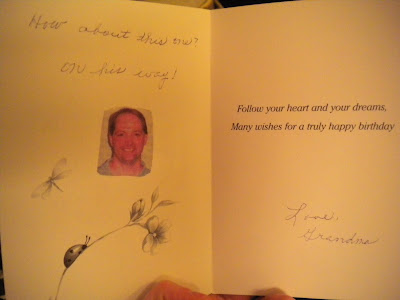 How about this one?
On his way!
Follow your heart and your dreams,
Many wishes for a truly happy birthday
Love,
Grandma